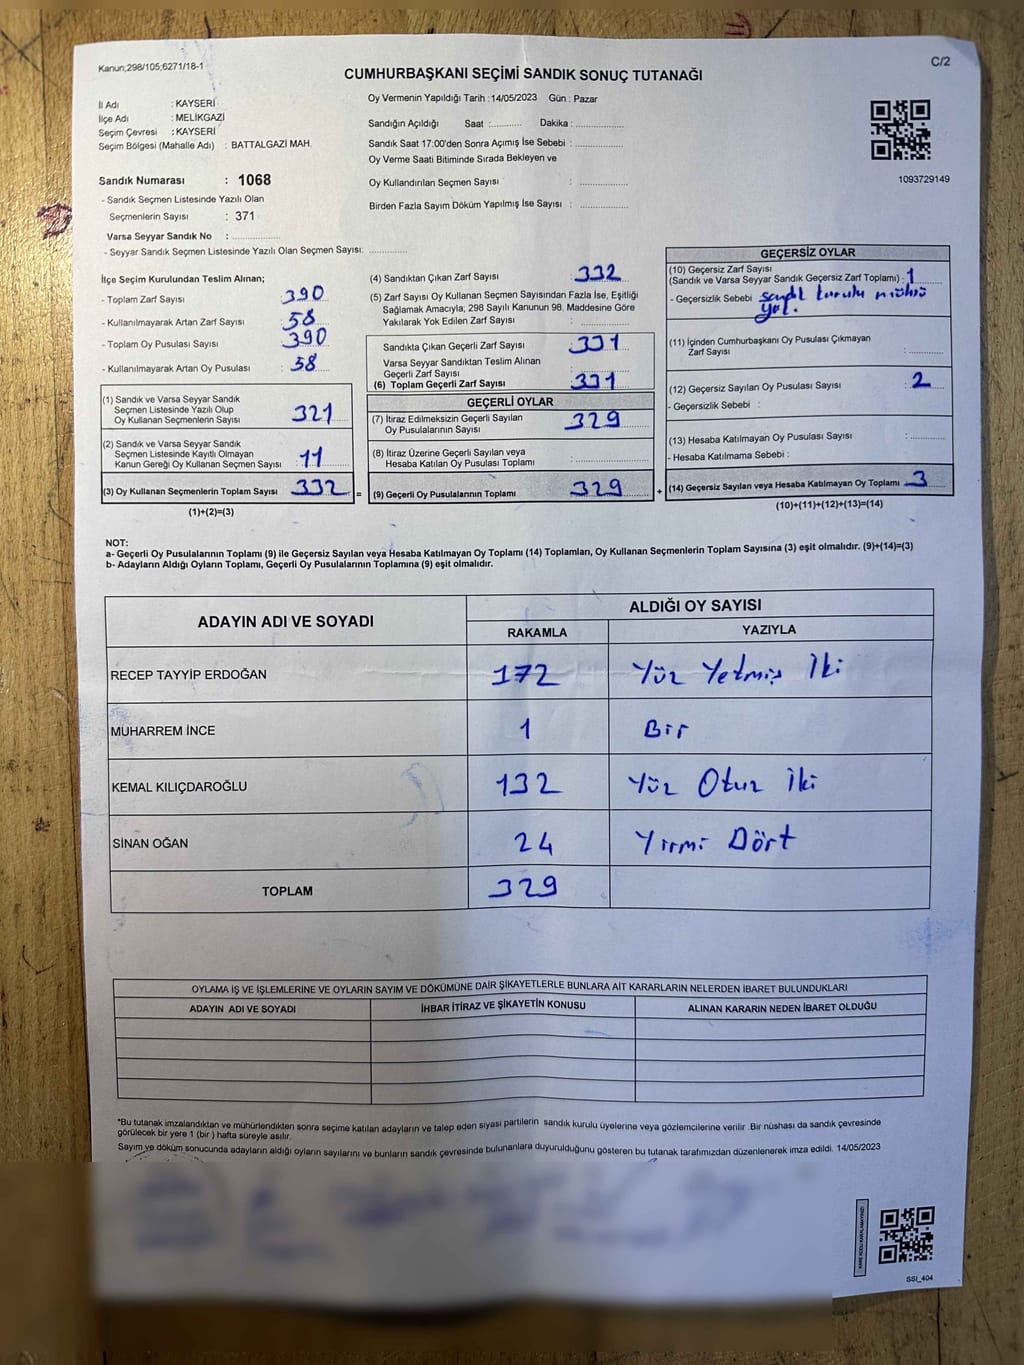 Kanun;298/105,6271/18-1
C/2
CUMHURBAŞKANI SEÇİMİ SANDIK SONUÇ TUTANAĞI
İl Adı : KAYSERİ
İlçe Adı : MELİKGAZİ
Seçim Çevresi : KAYSERİ
Seçim Bölgesi (Mahalle Adı) : BATTALGAZİ MAH.
Sandık Numarası : 1068
- Sandık Seçmen Listesinde Yazılı Olan
Seçmenlerin Sayısı : 371
Varsa Seyyar Sandık No : ..............
- Seyyar Sandık Seçmen Listesinde Yazılı Olan Seçmen Sayısı: ...........
Oy Vermenin Yapıldığı Tarih : 14/05/2023 Gün : Pazar
Sandığın Açıldığı Saat :.......... Dakika : ..............
Sandık Saat 17:00'den Sonra Açımış İse Sebebi : ..............
Oy Verme Saati Bitiminde Sırada Bekleyen ve
Oy Kullandırılan Seçmen Sayısı : ..............
Birden Fazla Sayım Döküm Yapılmış İse Sayısı : ..............
1093729149
İlçe Seçim Kurulundan Teslim Alınan;
- Toplam Zarf Sayısı : 390
- Kullanılmayarak Artan Zarf Sayısı : 58
- Toplam Oy Pusulası Sayısı : 390
- Kullanılmayarak Artan Oy Pusulası : 58
(1) Sandık ve Varsa Seyyar Sandık
Seçmen Listesinde Yazılı Olup
Oy Kullanan Seçmenlerin Sayısı : 321
(2) Sandık ve Varsa Seyyar Sandık
Seçmen Listesinde Kayıtlı Olmayan
Kanun Gereği Oy Kullanan Seçmen Sayısı : 11
(3) Oy Kullanan Seçmenlerin Toplam Sayısı : 332
(1)+(2)=(3)
=
(4) Sandıktan Çıkan Zarf Sayısı : 332
(5) Zarf Sayısı Oy Kullanan Seçmen Sayısından Fazla İse, Eşitliği
Sağlamak Amacıyla, 298 Sayılı Kanunun 98. Maddesine Göre
Yakılarak Yok Edilen Zarf Sayısı : ..............
Sandıkta Çıkan Geçerli Zarf Sayısı : 331
Varsa Seyyar Sandıktan Teslim Alınan
Geçerli Zarf Sayısı : ..............
(6) Toplam Geçerli Zarf Sayısı : 331
GEÇERLİ OYLAR
(7) İtiraz Edilmeksizin Geçerli Sayılan
Oy Pusulalarının Sayısı : 329
(8) İtiraz Üzerine Geçerli Sayılan veya
Hesaba Katılan Oy Pusulası Toplamı : ..............
(9) Geçerli Oy Pusulalarının Toplamı : 329
+
GEÇERSİZ OYLAR
(10) Geçersiz Zarf Sayısı
(Sandık ve Varsa Seyyar Sandık Geçersiz Zarf Toplamı) : 1
- Geçersizlik Sebebi : sandık kurulu mührü
yok.
(11) İçinden Cumhurbaşkanı Oy Pusulası Çıkmayan
Zarf Sayısı : ..........
(12) Geçersiz Sayılan Oy Pusulası Sayısı : 2
- Geçersizlik Sebebi :
(13) Hesaba Katılmayan Oy Pusulası Sayısı : ..........
- Hesaba Katılmama Sebebi :
(14) Geçersiz Sayılan veya Hesaba Katılmayan Oy Toplamı : 3
(10)+(11)+(12)+(13)=(14)
NOT:
a- Geçerli Oy Pusulalarının Toplamı (9) ile Geçersiz Sayılan veya Hesaba Katılmayan Oy Toplamı (14) Toplamları, Oy Kullanan Seçmenlerin Toplam Sayısına (3) eşit olmalıdır. (9)+(14)=(3)
b- Adayların Aldığı Oyların Toplamı, Geçerli Oy Pusulalarının Toplamına (9) eşit olmalıdır.
ADAYIN ADI VE SOYADI
ALDIĞI OY SAYISI
RAKAMLA YAZIYLA
RECEP TAYYİP ERDOĞAN 172 Yüz Yetmiş İki
MUHARREM İNCE 1 Bir
KEMAL KILIÇDAROĞLU 132 Yüz Otuz İki
SİNAN OĞAN 24 Yirmi Dört
TOPLAM 329
OYLAMA İŞ VE İŞLEMLERİNE VE OYLARIN SAYIM VE DÖKÜMÜNE DAİR ŞİKAYETLERLE BUNLARA AİT KARARLARIN NELERDEN İBARET BULUNDUKLARI
ADAYIN ADI VE SOYADI İHBAR İTİRAZ VE ŞİKAYETİN KONUSU ALINAN KARARIN NEDEN İBARET OLDUĞU
*Bu tutanak imzalandıktan ve mühürlendikten sonra seçime katılan adayların ve talep eden siyasi partilerin sandık kurulu üyelerine veya gözlemcilerine verilir. Bir nüshası da sandık çevresinde
görülecek bir yere 1 (bir ) hafta süreyle asılır.
Sayım ve döküm sonucunda adayların aldığı oyların sayılarını ve bunların sandık çevresinde bulunanlara duyurulduğunu gösteren bu tutanak tarafımızdan düzenlenerek imza edildi. 14/05/2023
KARE KODU KARALAMAYINIZ!
SSI_404